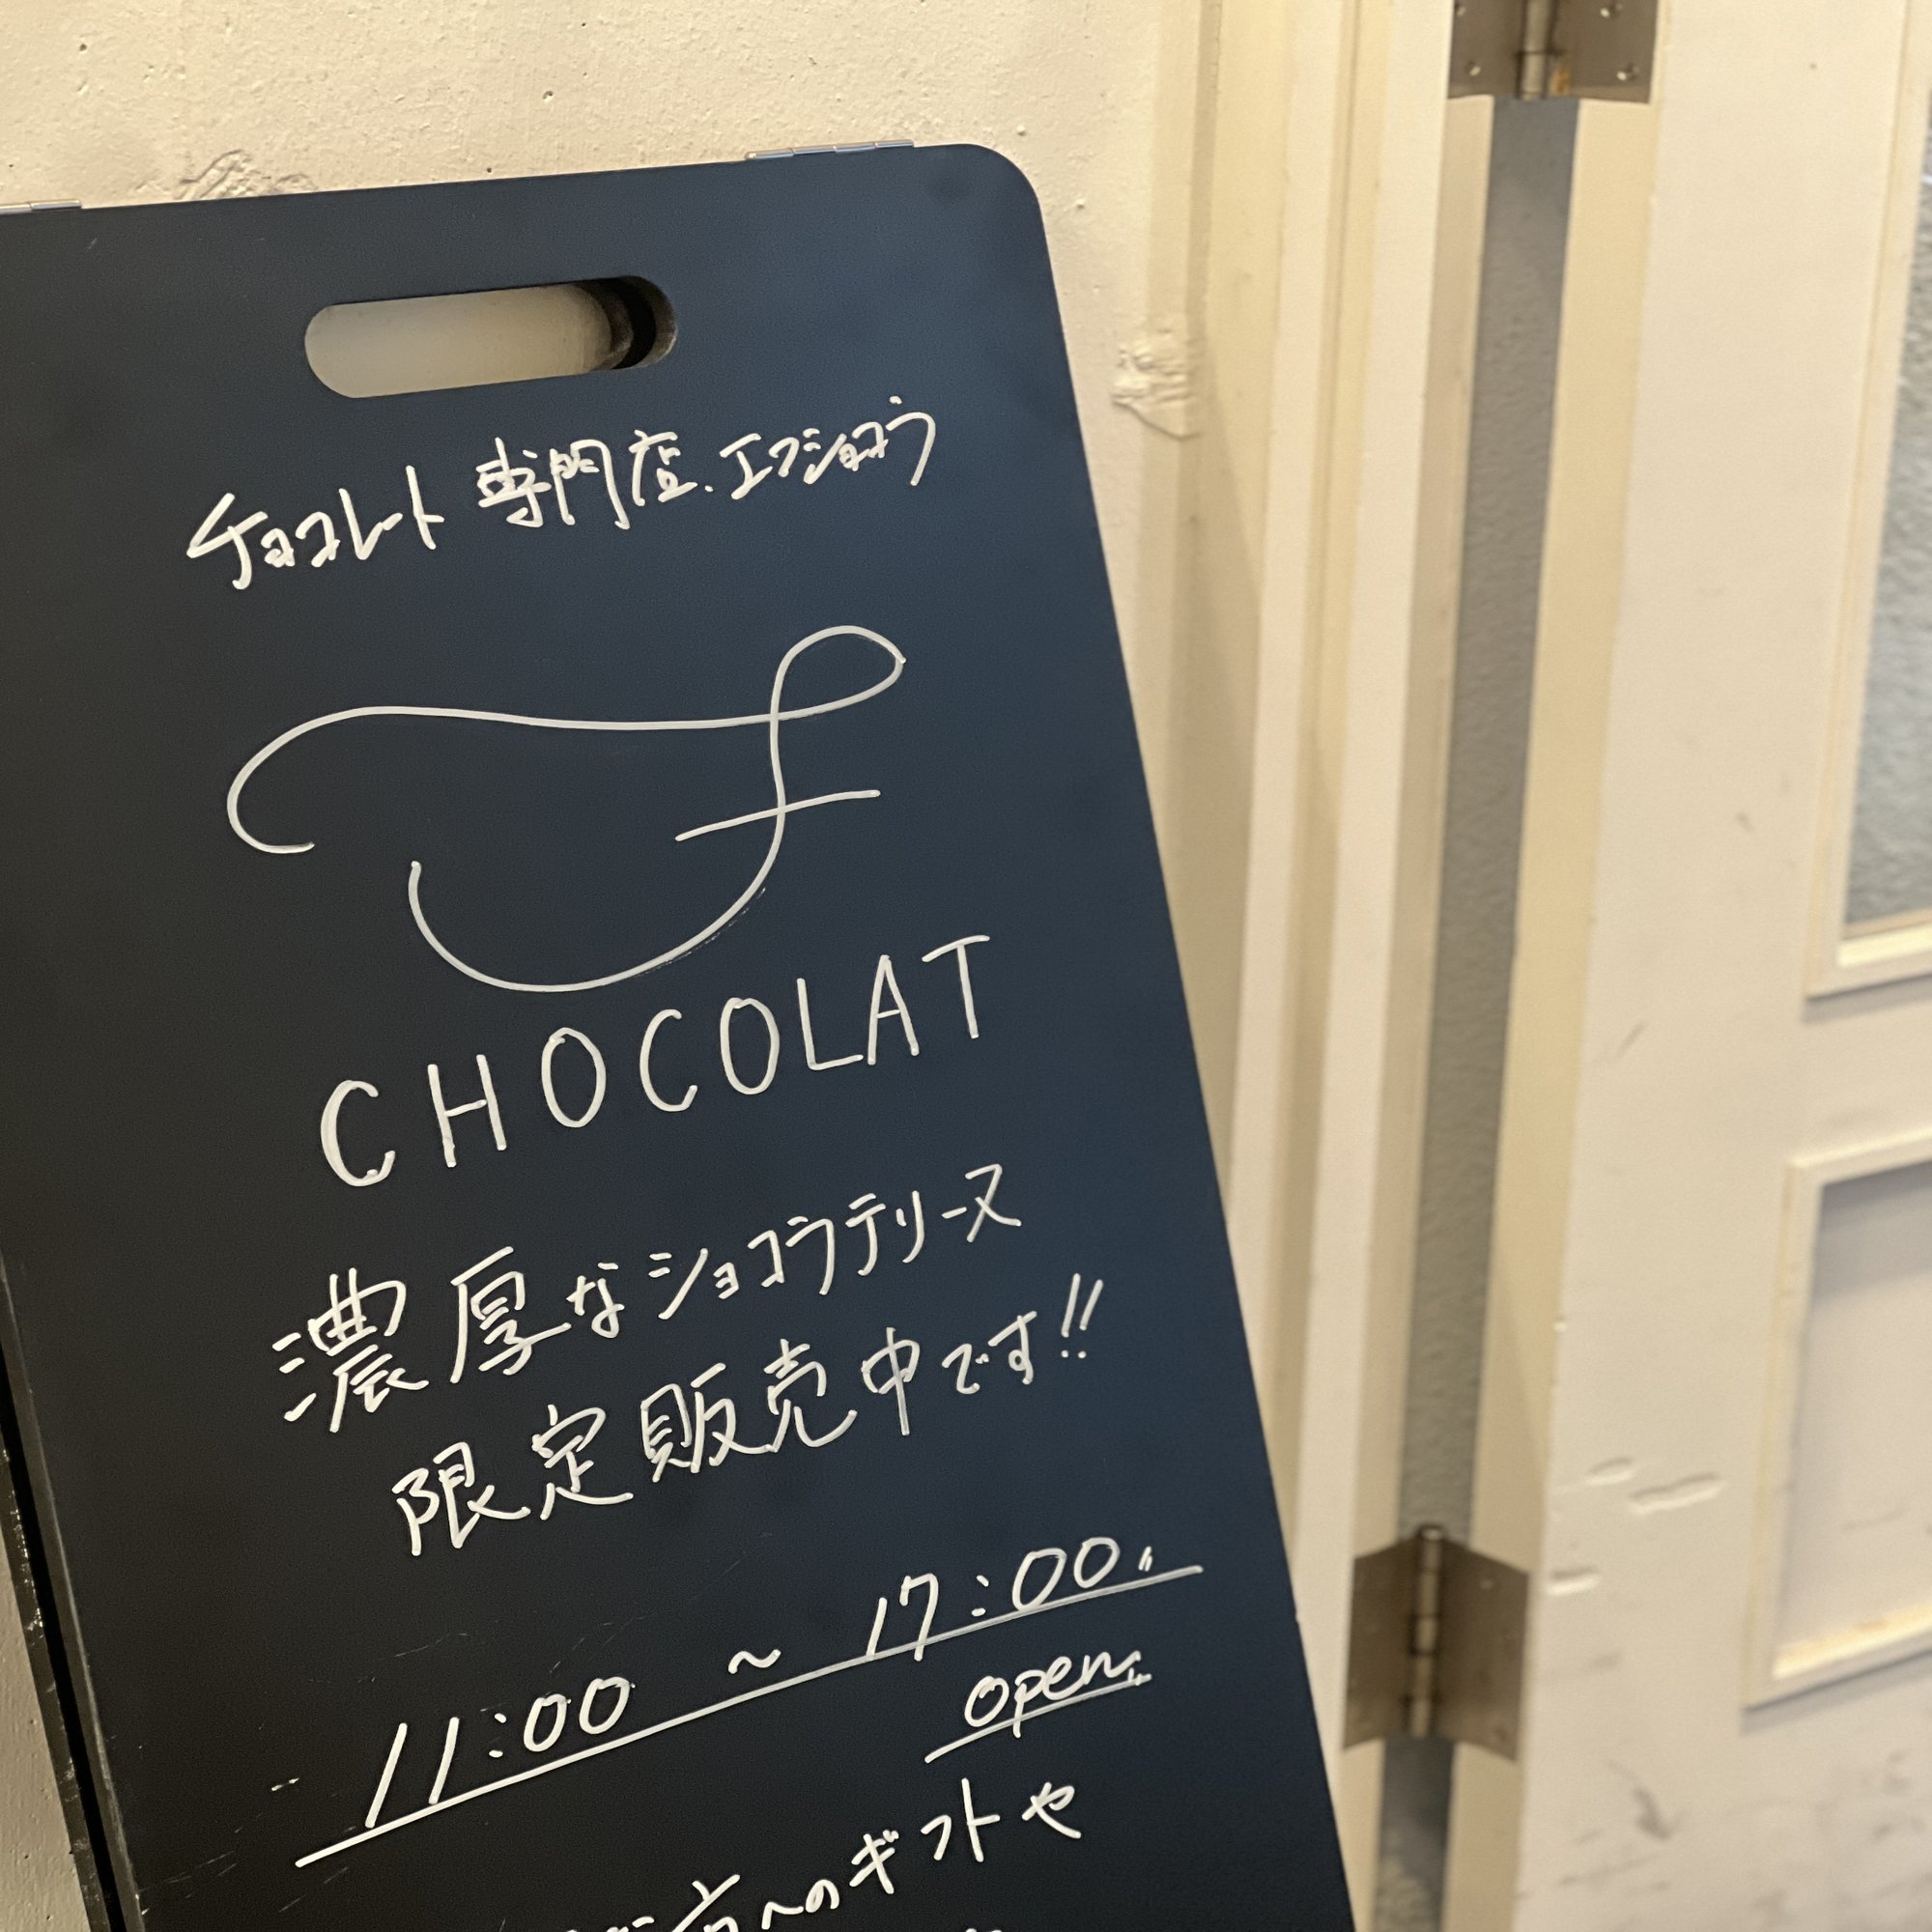 チョコレート専門店.エフショコラ
F
CHOCOLAT
濃厚なショコラテリーヌ
限定販売中です!!
11:00 ~ 17:00
open
方へのギフトや